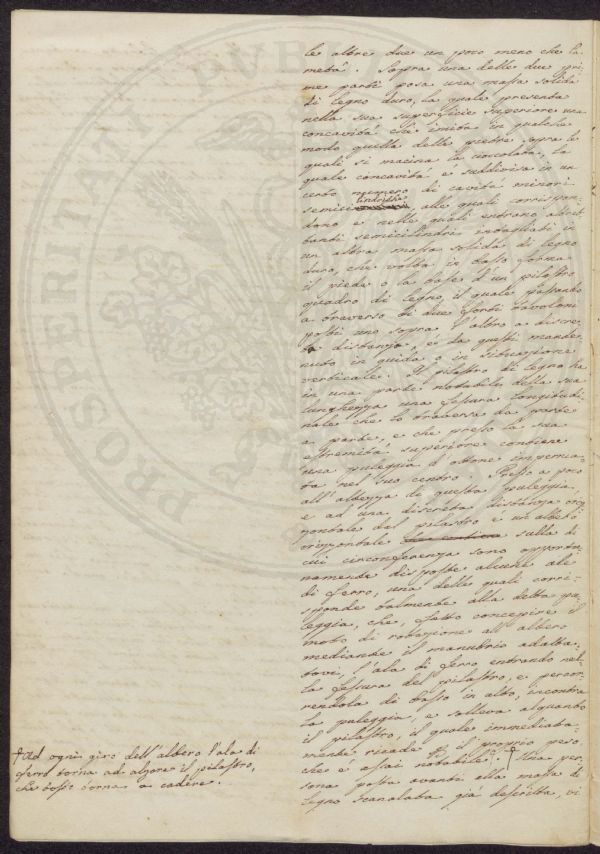 le altre due un poco meno che la
metà. Sopra una delle due pri-
me parti posa una massa solida
di legno duro, la quale presenta
nella sua superficie superiore una
concavità che imita in qualche
modo quella delle pietre sopra le
quali si macina la cioccolata, la
quale concavità è suddivisa in un
certo numero di cavità minori
semicilindriche alle quali corrispon-
dono e nelle quali entrano altret-
tanti semicilindri intagliati in
un altra massa solida di legno
duro, che volta in basso forma
il piede o la base d'un pilastro
quadro di legno, il quale passando
a traverso di due forti tavoloni
posti uno sopra l'altro a discre-
ta distanza, è da questi mante-
nuto in guida o in situazione
verticale. Il pilastro di legno ha
in una parte notabile della sua
lunghezza una fessura longitudi-
nale che lo traversa da parte
a parte, e che presso la sua
estremità superiore contiene
una puleggia d'ottone impernia-
ta nel suo centro. Presso a poco
all'altezza di questa puleggia,
e ad una discreta distanza oriz-
zontale dal pilastro è un albero
orizzontale sulla di
cui circonferenza sono opportu-
namente disposte alcune ale
di ferro, una delle quali corri-
sponde talmente alla detta pu-
leggia, che, fatto concepire il
moto di rotazione all'albero
mediante il manubrio adatta-
tovi, l'ala di ferro entrando nel-
la fessura del pilastro, e percor-
rendola di basso in alto, incontra
la puleggia, e solleva alquanto
il pilastro, il quale immediata-
mente ricade il proprio peso,
che è assai notabile. † Una per-
sona posta avanti alla massa di
legno scanalata già descritta, vi
† Ad ogni giro dell'albero l'ala di
ferro torna ad alzare il pilastro,
che tosto torna a cadere.
PVBLICAE
PROSPERITATI